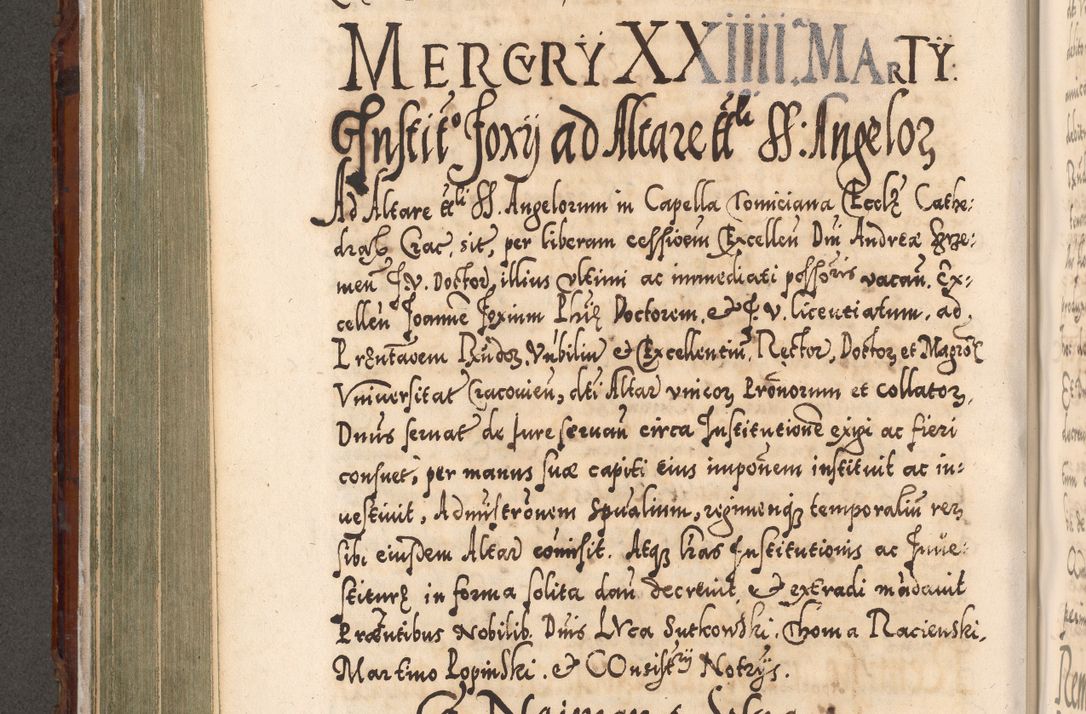 MERCVRY XXIIII. MARTY.
Instit.º Joxij ad Altare ttli SS: Angeloꝝ
Ad Altare ttli SS. Angelorum in Capella Tomiciana Eccłꝫ Cathe:
dralꝫ Crac, sit, per liberam cessioēm Excelleñ Dni Andreæ Srze:
meñ J.V. Doctoꝝ, illius vltimi ac immediati possoris vacañ, Ex:
celleñ Joannē Joxium Phiæ Doctorem, et J.V. licentiatum, ad
Præntãoem Rñdoꝝ, Nobiliũ et Excellentiũ, Rectoꝝ, Doctoꝝ et Magroꝝ
Vniuersitat Cracouieñ, dti Altar vnicoꝝ Prõnorum et Collatoꝝ,
Dnus seruat de Jure seruañ circa Institutionē exigi ac fieri
consuet, per manus suæ capiti eius imponēm instituit ac in:
uestiuit, Admistrõnem Spualium, regimenqꝫ temporaliũ reꝝ
sibi eiusdem Altar cõmisit. Atqꝫ has Institutionis ac Jnue:
stituræ in forma solita dañ decreuit, et extradi mãdauit
Præñtibus Nobilib. Dnis LVca Sutkowski, Thoma Racienski,
Martino Popinski. et COnsistrij Notrijs.